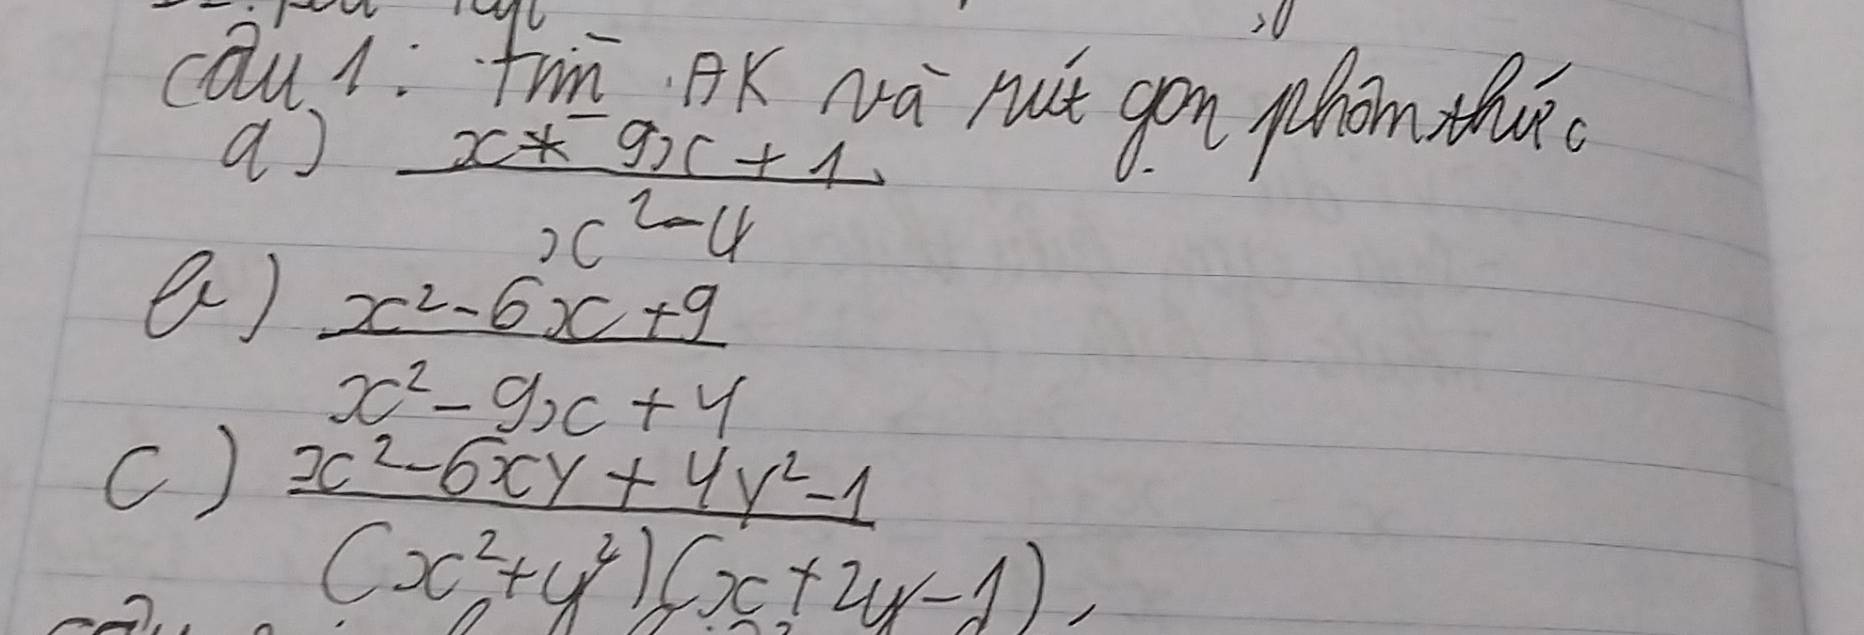 câu 1: tìm ĐK và rút gọn phâm thức
a) x* - 9x + 1 / x² - 4
b) x² - 6x + 9 / x² - 9x + 4
c) x² - 6xy + 4y² - 1 / (x² + y²)(x + 2y - 1),